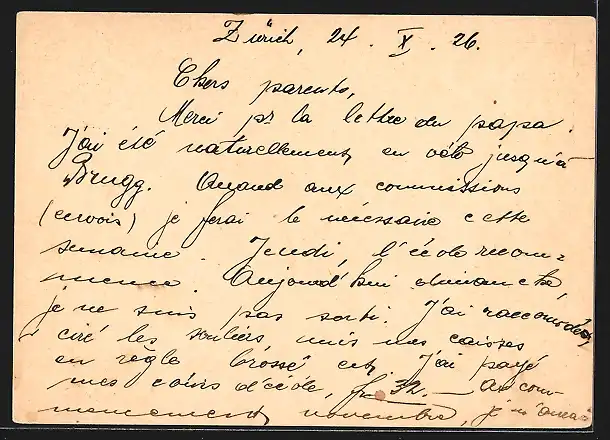 Zürich, 24. X. 26.
Chers parents,
Merci pr la lettre du papa.
J'ai été naturellement en vélo jusqu'à
Brugg. Quand aux commissions
(envois) je ferai le nécessaire cette
semaine. Jeudi, l'école recom-
mence. Aujourd'hui dimanche,
je ne suis pas sorti. J'ai raccomodé,
ciré les souliers mis mes caisses
en règle brossé etc. J'ai payé
mes cours d'école, fr. 32.— Au com-
mencement novembre, je